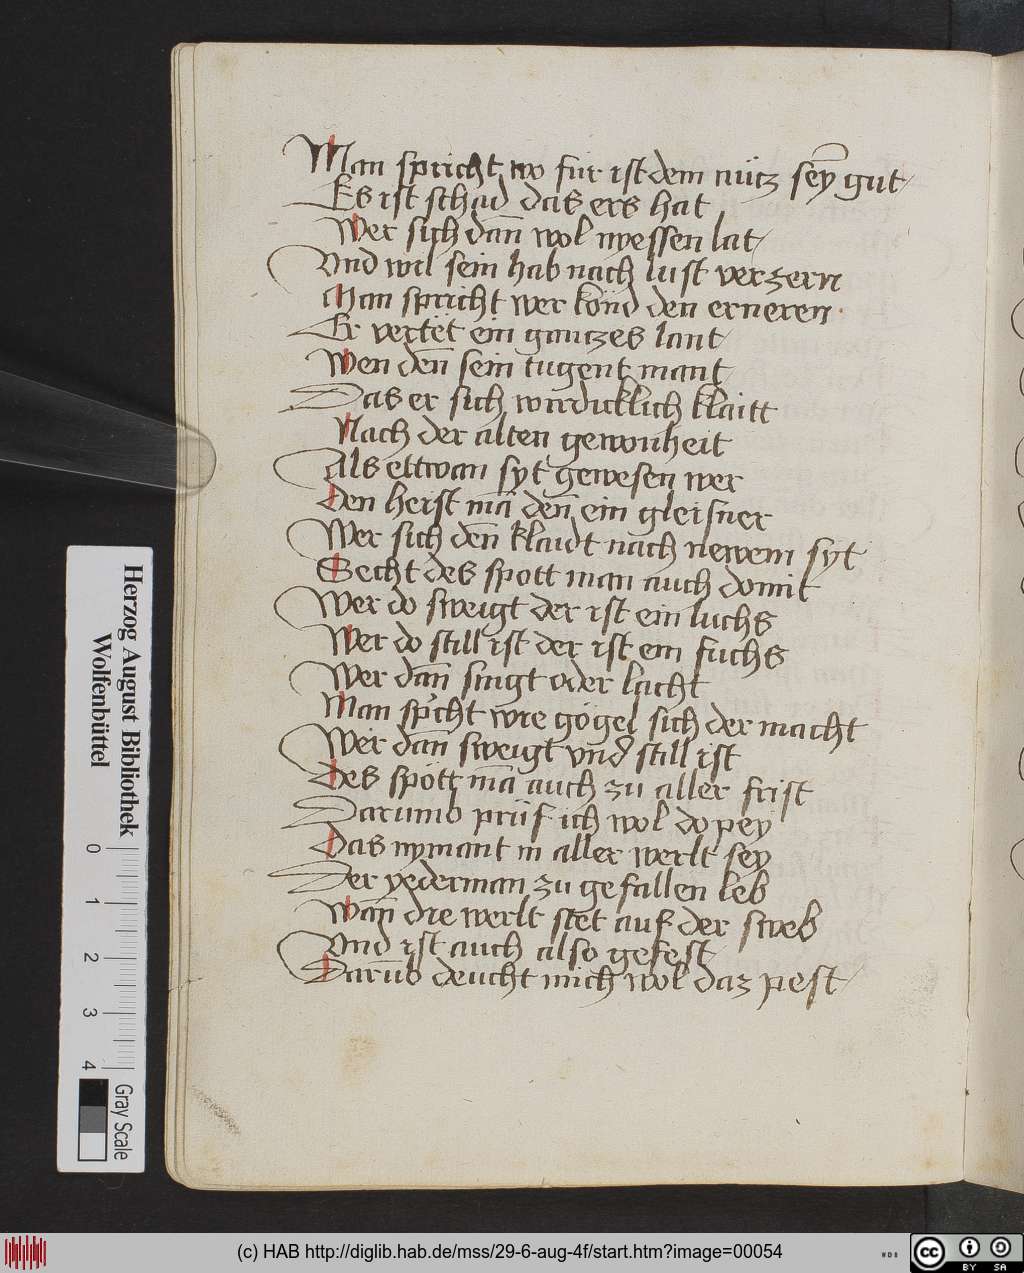 Man spricht wo für ist dem nütz seÿ gut
Es ist schad das ers hat
Wer sich dan̄ wol nyessen lat
Vnd wil sein hab nach lust verzern
Man spricht wer könd den erneren
Er vertët ein gantzes lant
Wen den̄ sein tugent mant
Das er sich wirdicklich klaitt
Nach der alten gewonheit
Als ettwan syt gewesen wer
Den heist mā den̄ ein gleisner
Wer sich den̄ klaidt nach newem syt
Secht des spott man auch domit
Wer do sweigt der ist ein luchs
Wer do still ist der ist ein fuchs
Wer dan̄ singt oder lacht
Man sp'cht wie gögel sich der macht
Wer dan̄ sweigt vnd still ist
Des spött mā auch zu aller frist
Darumb prüf ich wol do pey
Das nymant in aller werlt sey
Der yederman zu gefallen leb
Wan̄ die werlt stet auf der sweb
Vnd ist auch also gefest
Darūb deucht mich wol daz pest
Herzog August Bibliothek
Wolfenbüttel
0 1 2 3 4
Gray Scale
(c) HAB http://diglib.hab.de/mss/29-6-aug-4f/start.htm?image=00054
WDB
cc BY SA